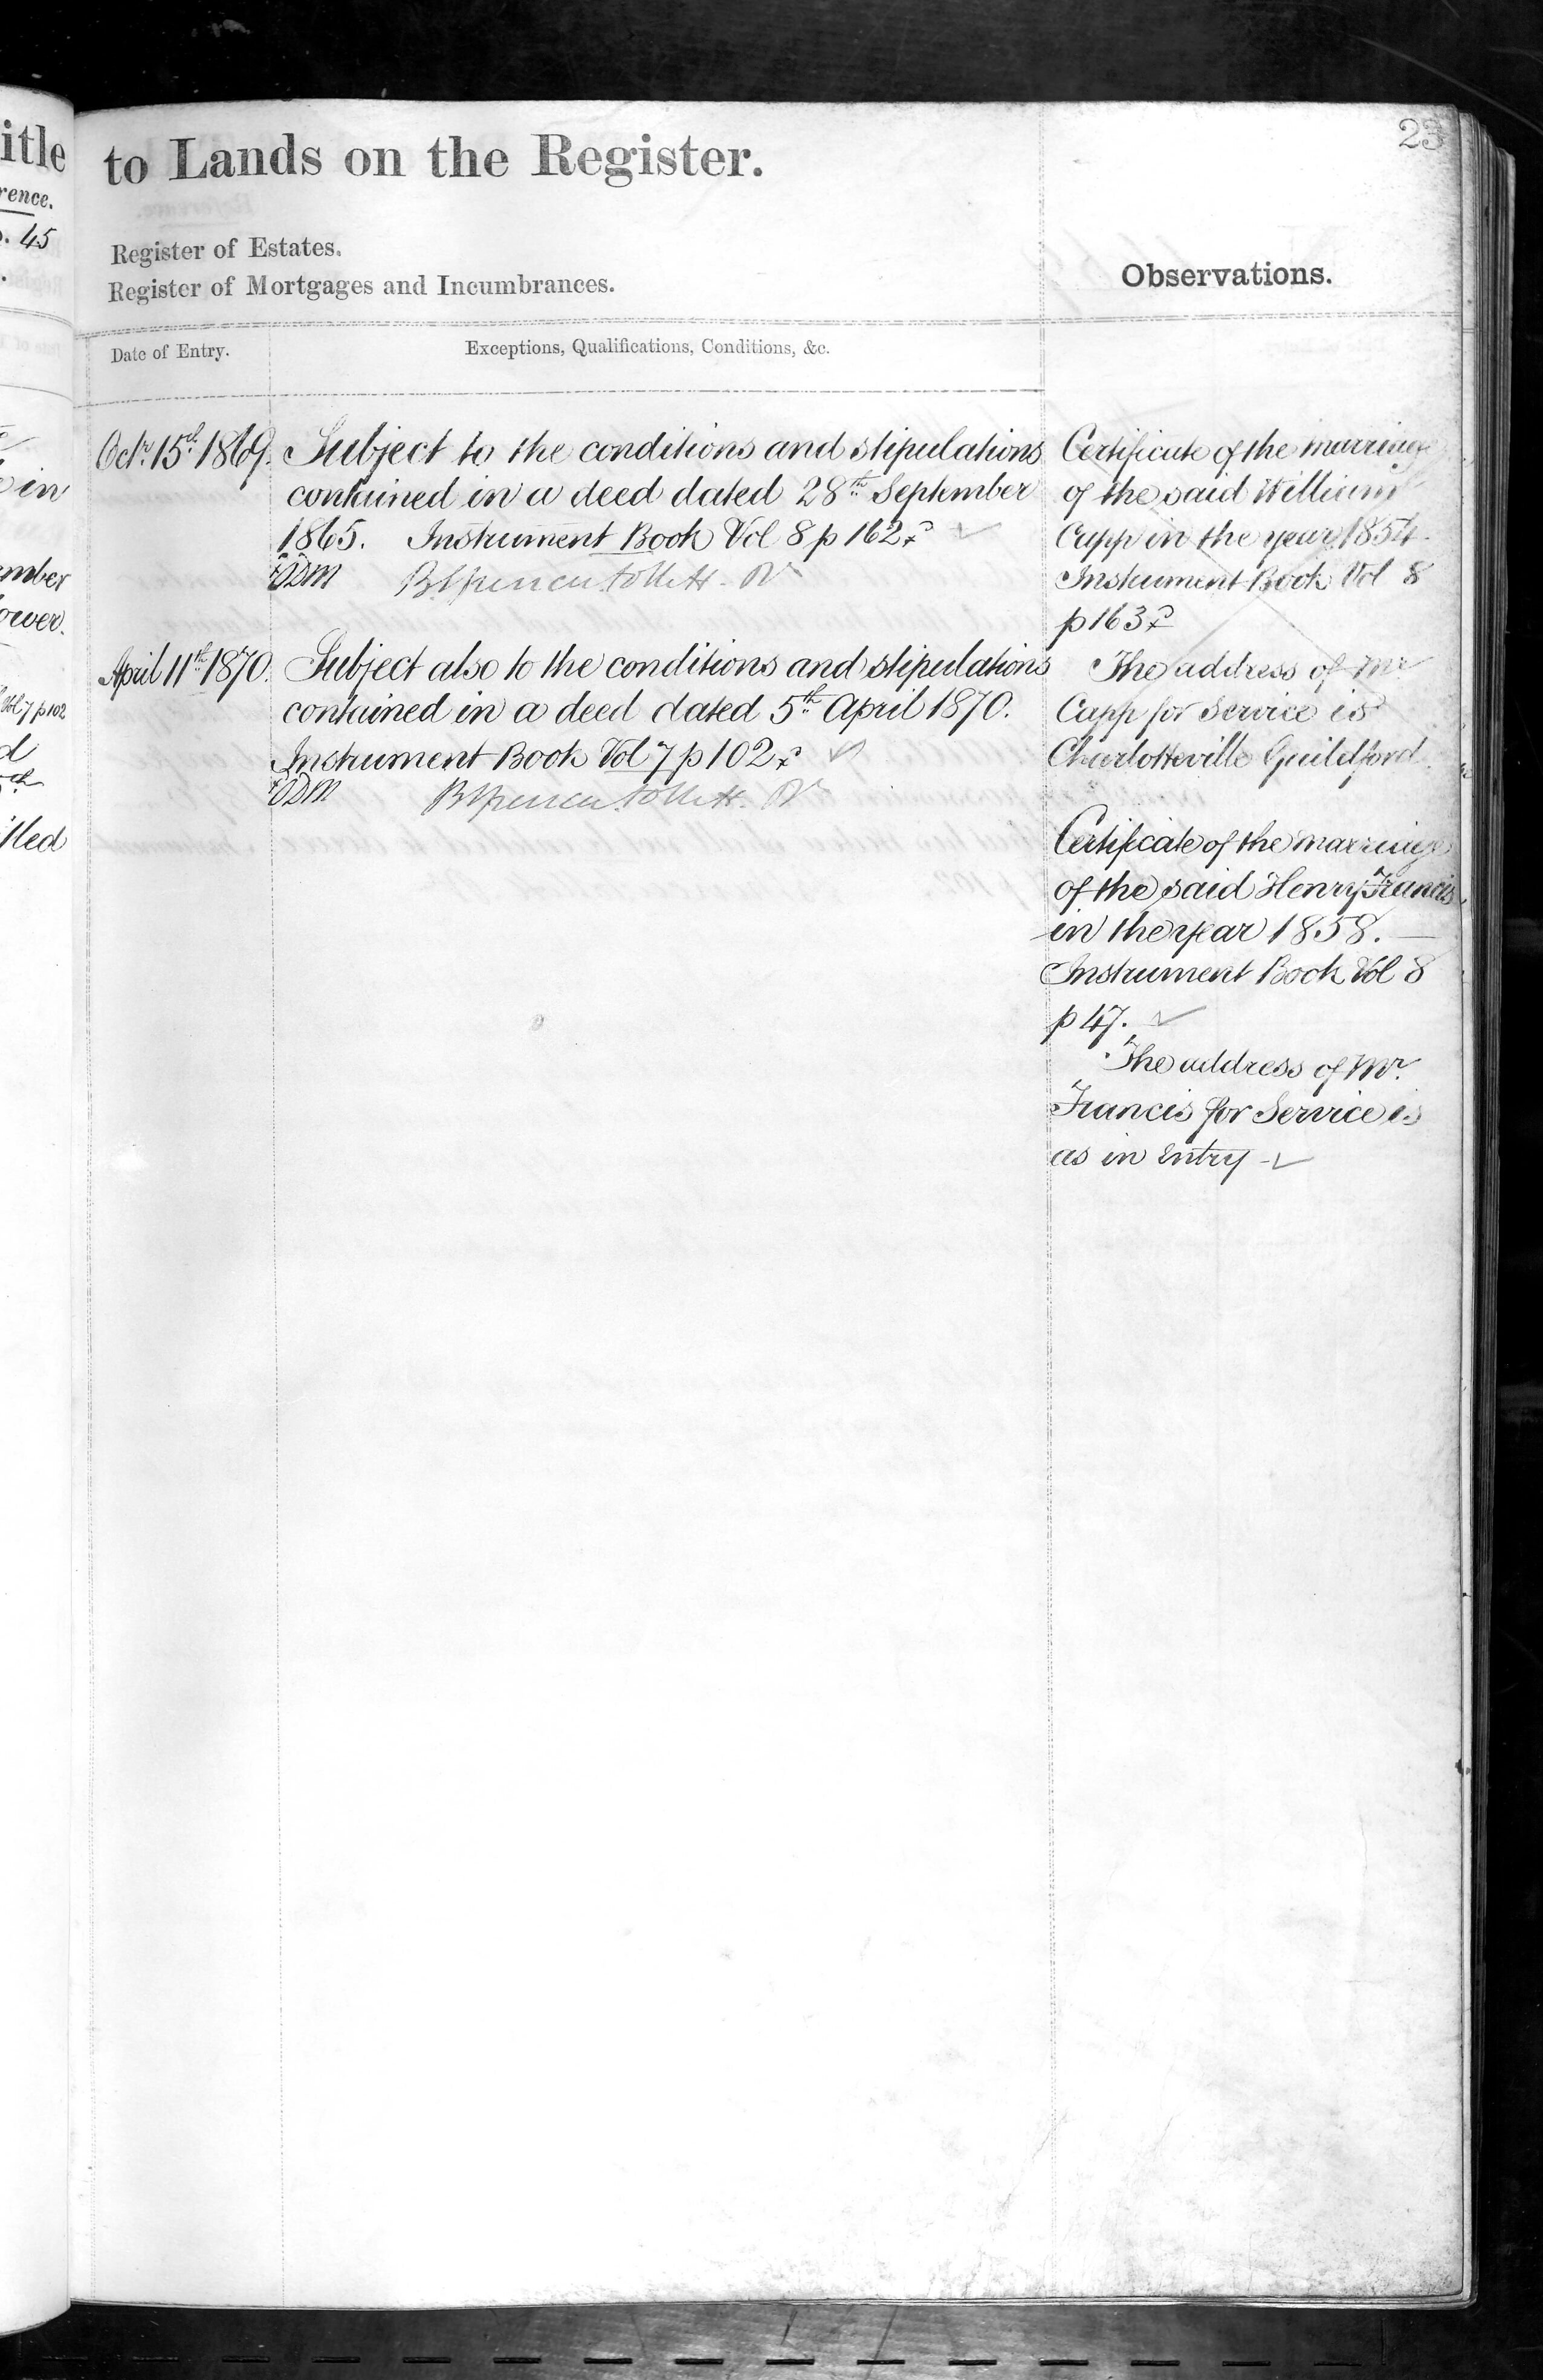 itle
rence.
. 45
in
ember
ower.
Vol 7 p 102
d
tled
23
to Lands on the Register.
Register of Estates.
Register of Mortgages and Incumbrances.
Observations.
Date of Entry.
Exceptions, Qualifications, Conditions, &c.
Octr. 15th 1869.
Subject to the conditions and stipulations
contained in a deed dated 28th September
1865. Instrument Book Vol 8 p 162
ODM
April 11th 1870.
Subject also to the conditions and stipulations
contained in a deed dated 5th April 1870.
Instrument Book Vol 7 p 102
ODM
Certificate of the marriage
of the said William
Capp in the year 1854.
Instrument Book Vol 8
p 163
The address of Mr
Capp for Service is
Charlotteville Guildford.
Certificate of the marriage
of the said Henry Francis
in the year 1858.
Instrument Book Vol 8
p 47.
The address of Mr.
Francis for Service is
as in Entry